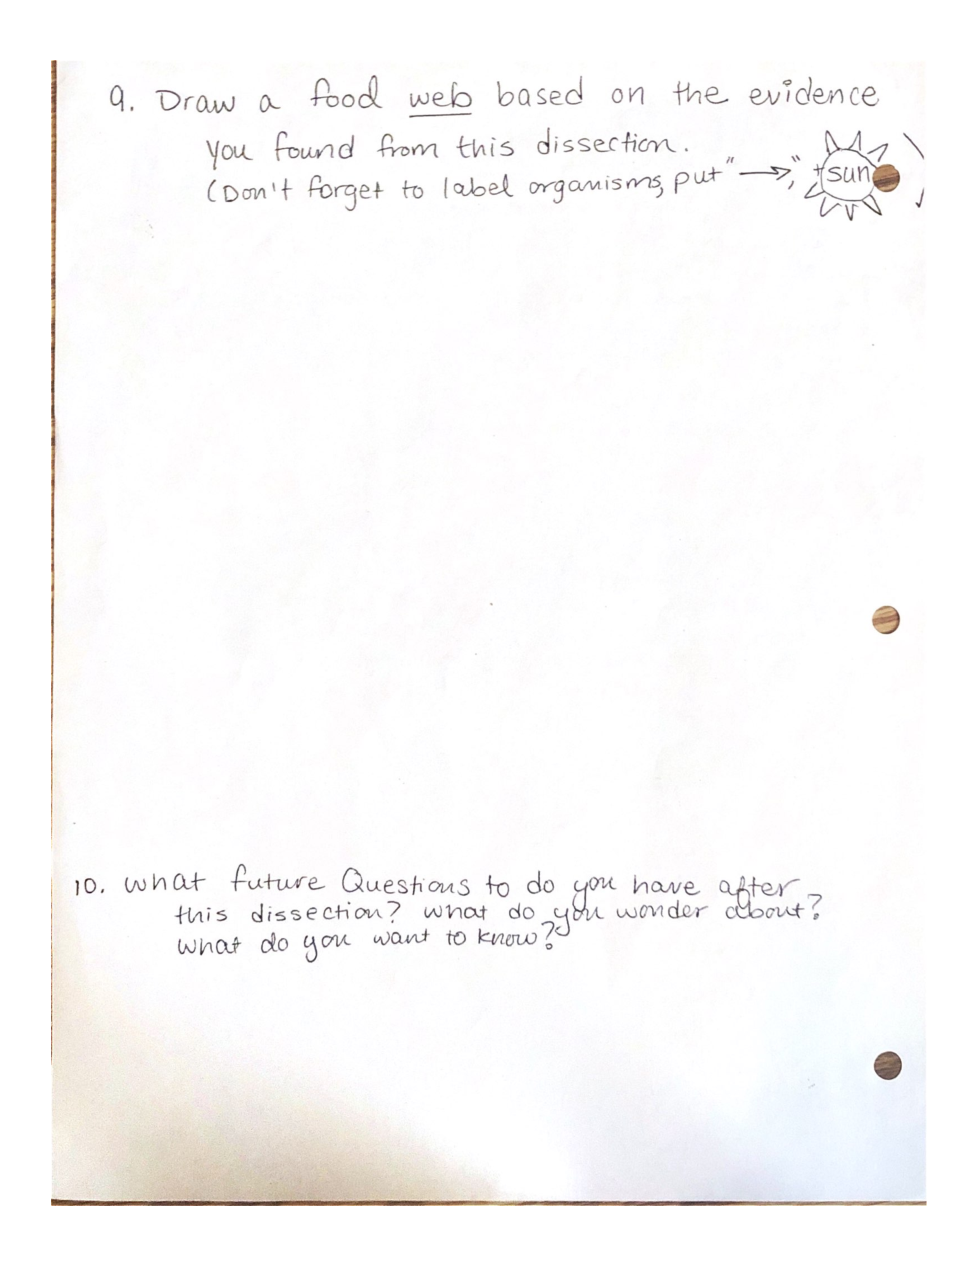 9. Draw a food web based on the evidence
you found from this dissection.
(Don't forget to label organisms, put "→," + sun )
10. What future Questions to do you have after
this dissection? what do you wonder about?
What do you want to know?